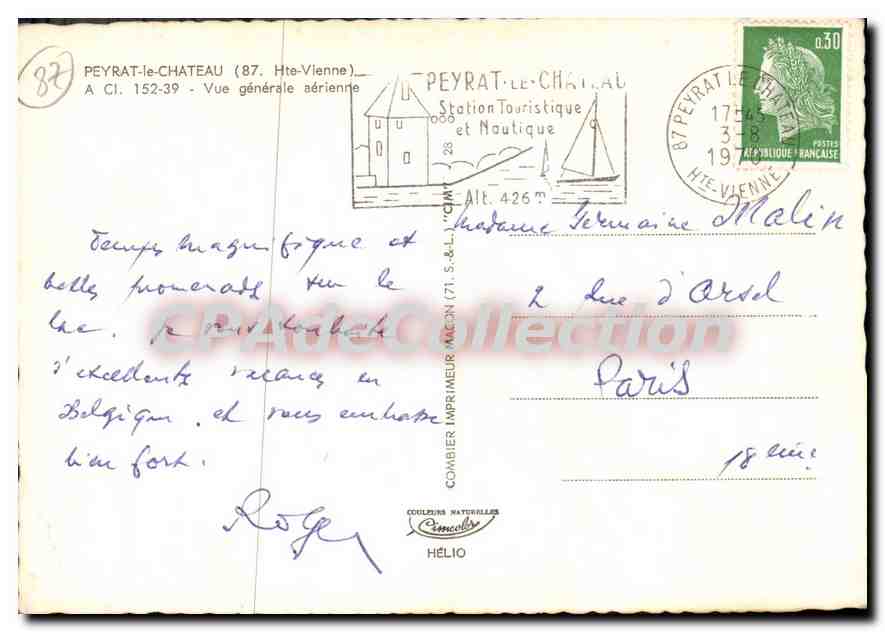 87
PEYRAT-le-CHATEAU (87. Hte-Vienne)
A CI. 152-39 - Vue générale aérienne
PEYRAT-LE-CHATEAU
Station Touristique
et Nautique
Alt. 426m
87 PEYRAT LE CHATEAU
17H45
3-8
1970
HTE-VIENNE
0.30
POSTES
REPUBLIQUE FRANÇAISE
Temps magnifique et
belles promenades sur le
lac. Je vous souhaite
d'excellentes vacances en
Belgique, et vous embrasse
bien fort.
Roger
COMBIER IMPRIMEUR MACON (71. S.-&-L.) "CIM" 28
Madame Germaine Malin
2 Rue d'Orsel
Paris
18ème
COULEURS NATURELLES
Cimcolor
HÉLIO
CPAdeCollection.com